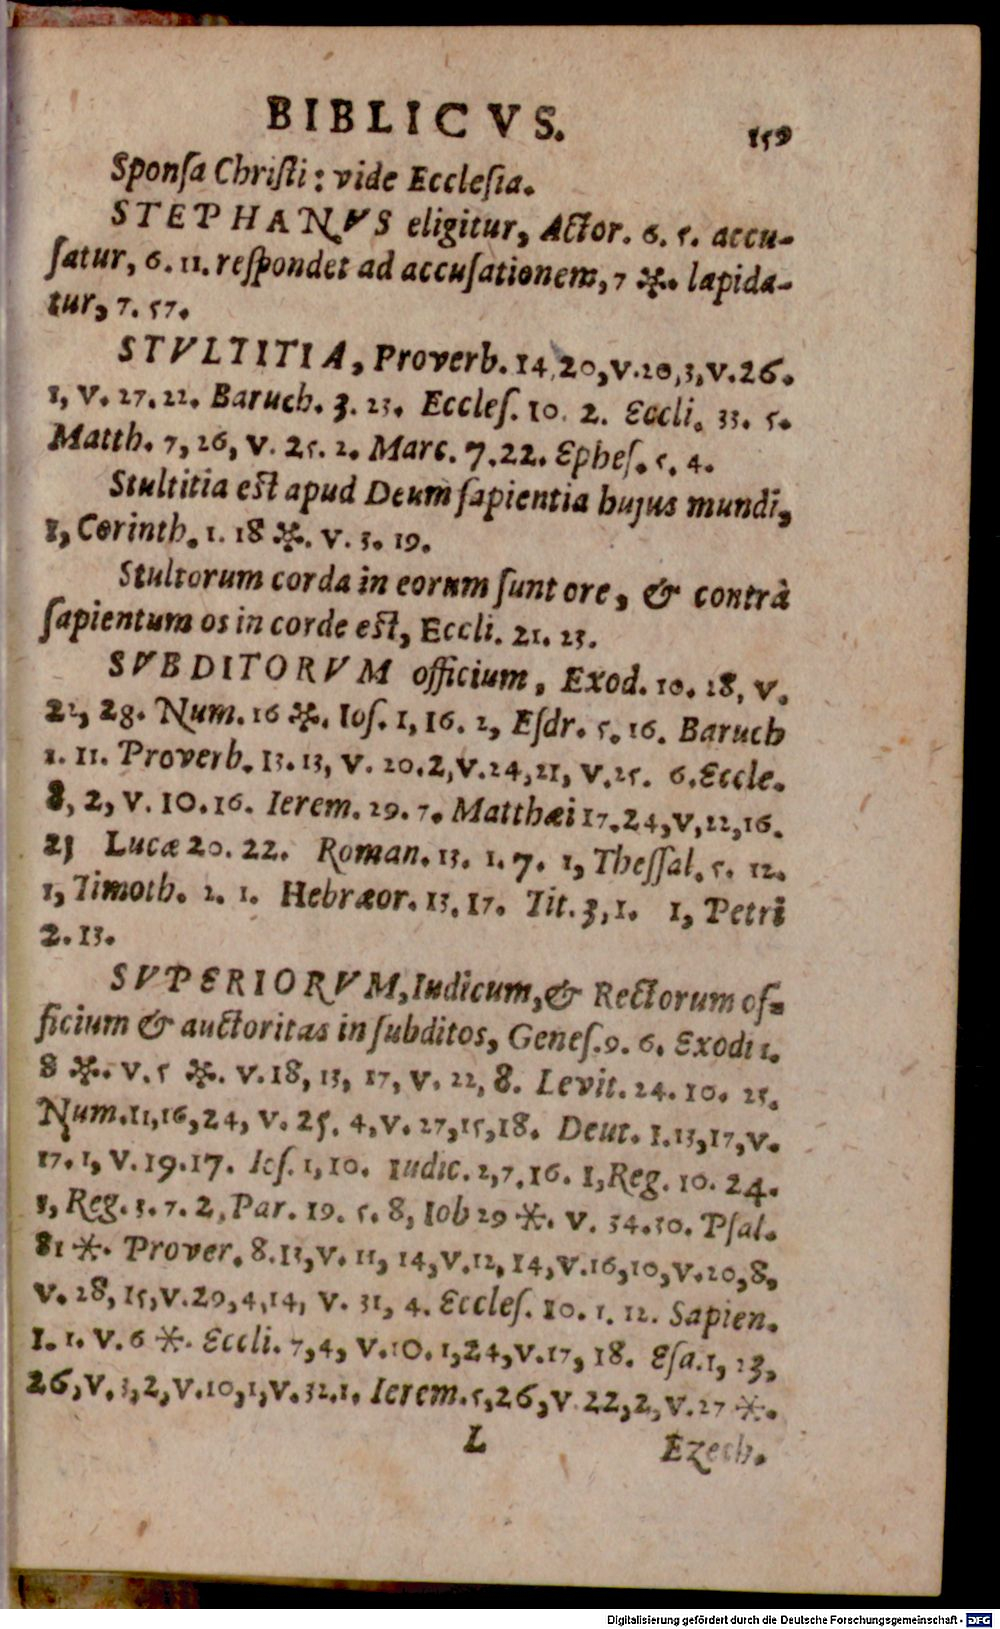 BIBLICVS. 159
Sponſa Chriſti: vide Eccleſia.
STEPHANVS eligitur, Actor. 6. 5. accu-
ſatur, 6. 11. reſpondet ad accuſationem, 7 *. lapida-
tur, 7. 57.
STVLTITIA, Proverb. 14,20, v.20,3, v.26.
1, v. 27.22. Baruch. 3. 23. Eccleſ. 10. 2. Eccli. 33. 5.
Matth. 7, 26, v. 25. 2. Marc. 7.22. Epheſ. 5. 4.
Stultitia eſt apud Deum ſapientia hujus mundi,
1, Corinth. 1. 18 *. v. 3. 19.
Stultorum corda in eorum ſunt ore, & contrà
ſapientum os in corde eſt, Eccli. 21. 23.
SVBDITORVM officium, Exod. 10. 28, v.
22, 28. Num. 16 *. Ioſ. 1, 16. 2, Eſdr. 5. 16. Baruch
1. 11. Proverb. 13. 13, v. 20.2, v.24,21, v.25. 6. Eccle.
8, 2, v. 10. 16. Ierem. 29. 7. Matthæi 17.24, v, 22, 16.
21 Lucæ 20. 22. Roman. 13. 1. 7. 1, Theſſal. 5. 12.
1, Timoth. 2. 1. Hebræor. 13. 17. Tit. 3, 1. 1, Petri
2. 13.
SVPERIORVM, Iudicum, & Rectorum of-
ficium & auctoritas in ſubditos, Geneſ. 9. 6. Exodi 1.
8 *. v. 5 *. v. 18, 13, 17, v. 22, 8. Levit. 24. 10. 25.
Num. 11,16,24, v. 25. 4, v. 27,15,18. Deut. 1.13,17, v.
17. 1, v. 19.17. Ioſ. 1, 10. Iudic. 2,7,16. 1, Reg. 10. 24.
3, Reg. 3. 7. 2, Par. 19. 5. 8, Iob 29 *. v. 34.30. Pſal.
81 *. Prover. 8.13, v. 11, 14, v.12, 14, v.16,10, v.20,8,
v. 28, 15, v.29,4,14, v. 31, 4. Eccleſ. 10. 1. 12. Sapien.
1. 1. v. 6 *. Eccli. 7,4, v.10. 1,24, v.17, 18. Eſa.1, 23,
26, v. 3,2, v.10,1, v.32.1. Ierem.5,26, v 22,2, v.27 *.
L Ezech.
Digitalisierung gefördert durch die Deutsche Forschungsgemeinschaft - DFG